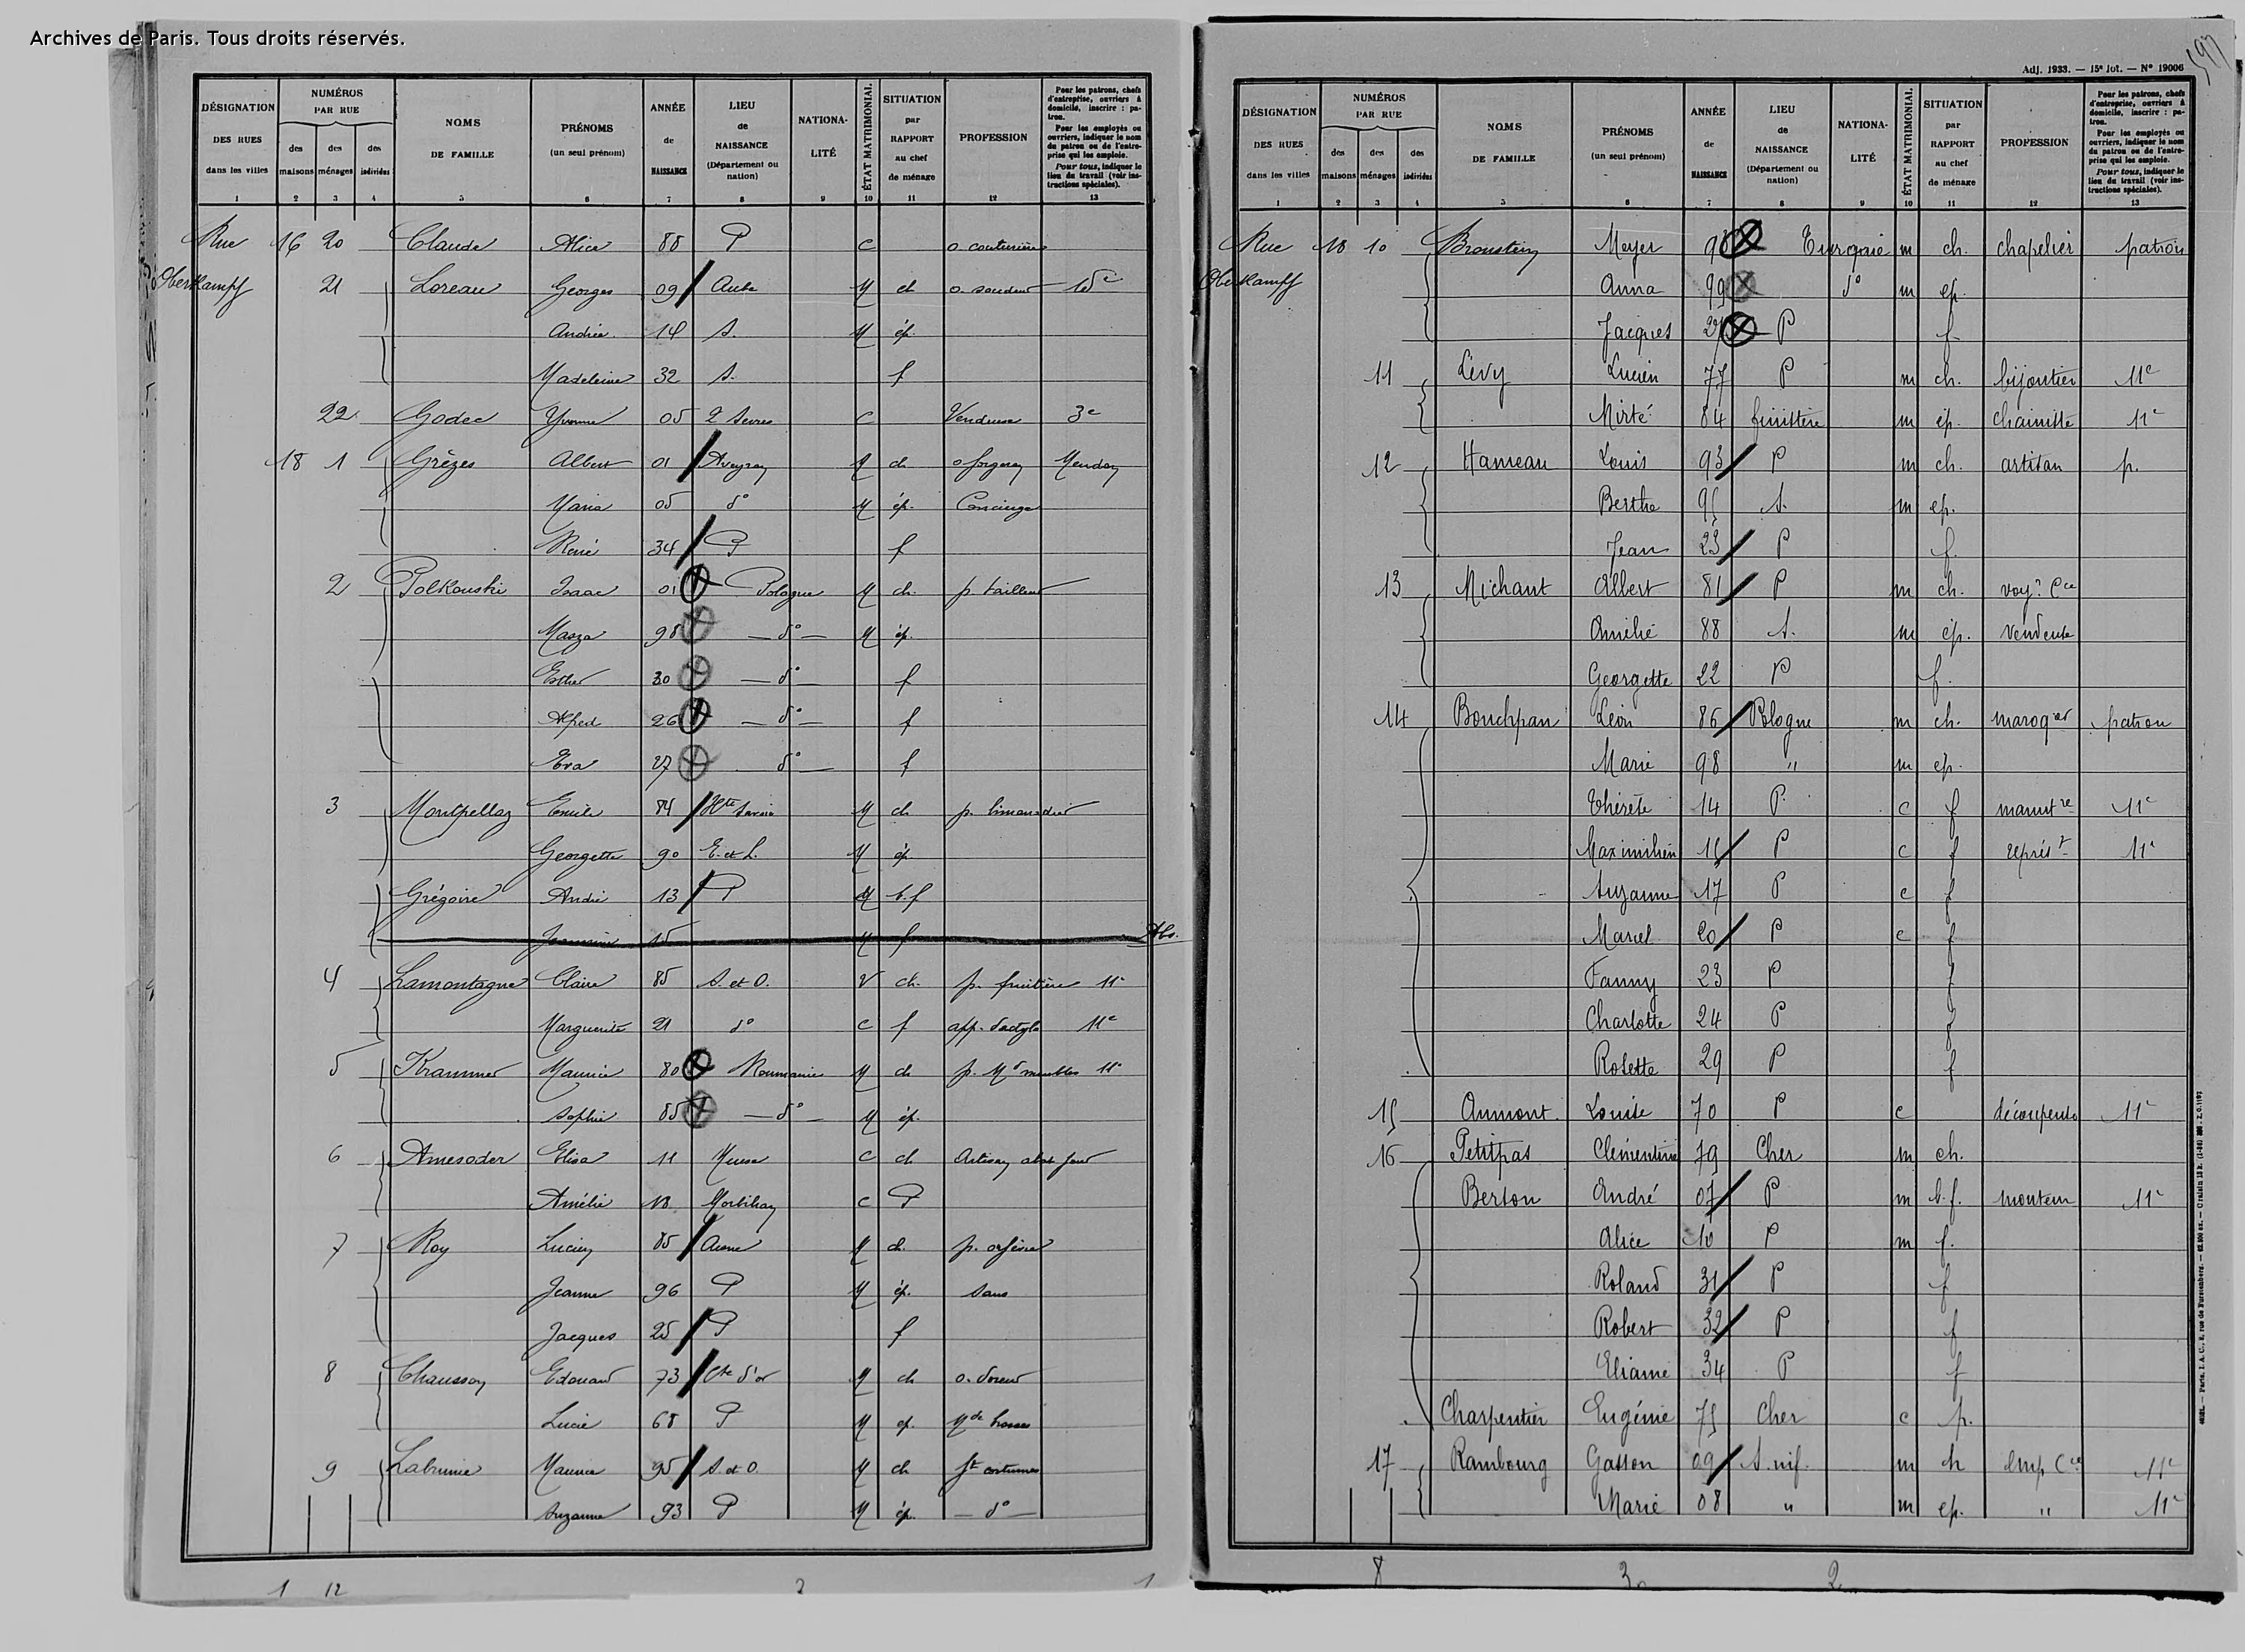 Archives de Paris. Tous droits réservés.
DÉSIGNATION DES RUES dans les villes | NUMÉROS PAR RUE des maisons | des ménages | des individus | NOMS DE FAMILLE | PRÉNOMS (un seul prénom) | ANNÉE de NAISSANCE | LIEU de NAISSANCE (Département ou nation) | NATIONALITÉ | ÉTAT MATRIMONIAL | SITUATION par RAPPORT au chef de ménage | PROFESSION | Pour les patrons, chefs d'entreprise, ouvriers à domicile, inscrire : patron. Pour les employés ou ouvriers, indiquer le nom du patron ou de l'entreprise qui les emploie. Pour tous, indiquer le lieu du travail (voir instructions spéciales).
1 2 3 4 5 6 7 8 9 10 11 12 13
Rue 16 20 Claude Alice 88 P c o couturière
Oberkampf 21 Loreau Georges 09 Aube M ch o. soudeur 15e
Andrée 14 S. M ép.
Madeleine 32 S. f
22 Godec Yvonne 05 2 Sevres c Vendeuse 3e
18 1 Grèzes Albert 01 Aveyron M ch o forgeron Meudon
Maria 05 do M ép. Concierge
René 34 P f
2 Polkouski Isaac 01 Pologne M ch. p. tailleur
Masza 98 do M ép.
Esther 30 do f
Alfred 26 do f
Eva 27 do f
3 Montpellaz Emile 84 Hte Savoie M ch p. limonadier
Georgette 90 E. et L. M ép
Grégoire André 13 P M b.f
15 M f Abs.
4 Lamontagne Claire 85 S. et O. V ch. p. fruitière 11e
Marguerite 21 do c f app. dactylo 11e
5 Krammer Maurice 80 Roumanie M ch p. Md meubles 11e
Sophie 85 do M ép.
6 Amesoder Elisa 11 Meuse c ch Artisan
Amélie 13 Morbihan c P
7 Roy Lucien 85 Aisne M ch. p. orfèvre
Jeanne 96 P M ép. Sans
Jacques 25 P f
8 Chausson Edouard 73 Cte d'or M ch o. doreur
Lucie 68 P M ep. Mde
9 Labrunie Maurice 95 S. et O. M ch ft costumes
Suzanne 93 P M ép. do
1 12 2 1
597
Adj. 1933. — 15e lot. — No 19006
DÉSIGNATION DES RUES dans les villes | NUMÉROS PAR RUE des maisons | des ménages | des individus | NOMS DE FAMILLE | PRÉNOMS (un seul prénom) | ANNÉE de NAISSANCE | LIEU de NAISSANCE (Département ou nation) | NATIONALITÉ | ÉTAT MATRIMONIAL | SITUATION par RAPPORT au chef de ménage | PROFESSION | Pour les patrons, chefs d'entreprise, ouvriers à domicile, inscrire : patron. Pour les employés ou ouvriers, indiquer le nom du patron ou de l'entreprise qui les emploie. Pour tous, indiquer le lieu du travail (voir instructions spéciales).
1 2 3 4 5 6 7 8 9 10 11 12 13
Rue 18 10 Broustein Meyer 98 Turquie m ch. chapelier patron
Oberkampf Anna 99 do m ep.
Jacques 27 P f
11 Lévy Lucien 77 P m ch. bijoutier 11e
Mirté 84 finistère m ép. chainiste 11e
12 Hameau Louis 93 P m ch. artisan p.
Berthe 95 S. m ep.
Jean 23 P f.
13 Michaut Albert 81 P m ch. voyr Cce
Amélie 88 S. m ép. vendeuse
Georgette 22 P f.
14 Bouchpan Léon 86 Pologne m ch. maroqer patron
Marie 98 " m ep.
Thérèse 14 P. c f manutre 11e
Maximilien 15 P c f représt 11e
Suzanne 17 P c f
Marcel 20 P c f
Fanny 23 P f
Charlotte 24 P f
Rosette 29 P f
15 Aumont Louise 70 P c découpeuse 11e
16 Petitpas Clémentine 79 Cher m ch.
Berton André 07 P m b.f. monteur 11e
Alice 10 P m f.
Roland 31 P f
Robert 32 P f
Eliane 34 P f
Charpentier Eugénie 75 Cher c p.
17 Rambourg Gaston 09 S. inf. m ch emp Cce 11e
Marie 08 " m ep. " 11e
8 3 2